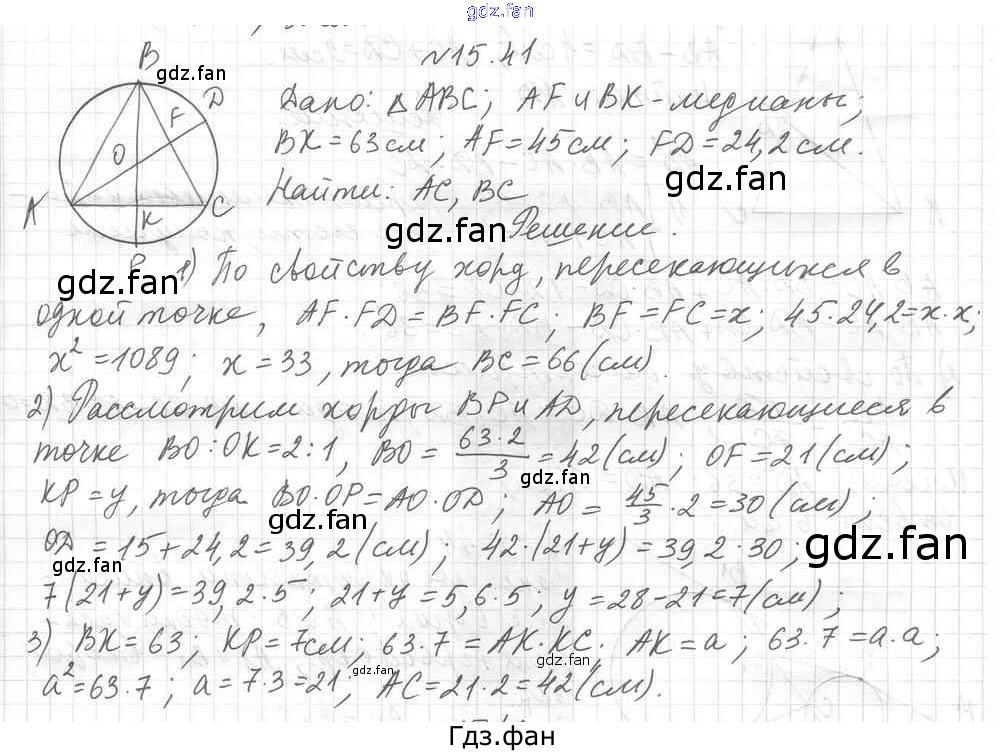 gdz.fan
№15.41
B
gdz.fan
D
F
O
A
K
C
P
Дано: △ABC; AF и BK - медианы;
BK = 63 см; AF = 45 см; FD = 24,2 см.
gdz.fan
Найти: AC, BC
gdz.fan
Решение.
gdz.fan
1) По свойству хорд, пересекающихся в
одной точке, AF·FD = BF·FC; BF = FC = x; 45·24,2 = x·x;
x² = 1089; x = 33, тогда BC = 66 (см).
2) Рассмотрим хорды BP и AD, пересекающиеся в
точке BO:OK = 2:1, BO = 63·2/3 = 42 (см); OF = 21 (см);
gdz.fan
KP = y, тогда BO·OP = AO·OD; AO = 45/3·2 = 30 (см);
gdz.fan
OD = 15 + 24,2 = 39,2 (см); 42·(21+y) = 39,2·30;
gdz.fan
gdz.fan
7(21+y) = 39,2·5; 21+y = 5,6·5; y = 28-21 = 7 (см);
3) BK = 63; KP = 7см; 63·7 = AK·KC; AK = a; 63·7 = a·a;
gdz.fan
gdz.fan
a² = 63·7; a = 7·3 = 21; AC = 21·2 = 42 (см).
Гдз.фан